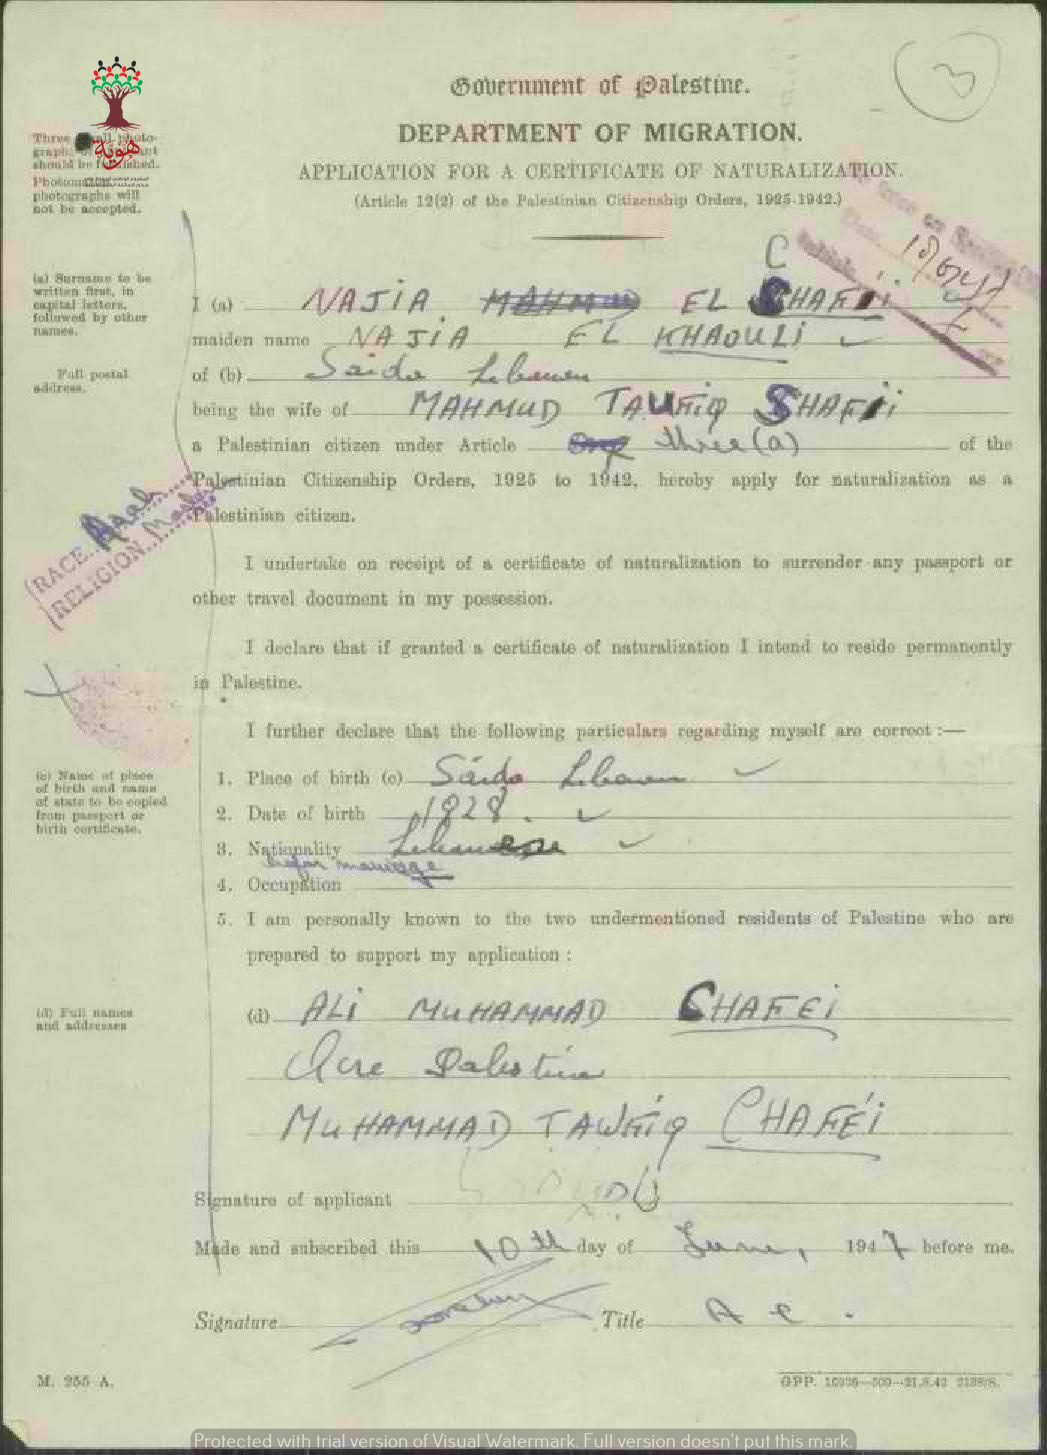 3
Government of Palestine.
DEPARTMENT OF MIGRATION.
APPLICATION FOR A CERTIFICATE OF NATURALIZATION.
(Article 12(2) of the Palestinian Citizenship Orders, 1925-1942.)
هوية
Three small photo-
graphs
should be furnished.
photographs will
not be accepted.
(a) Surname to be
written first, in
capital letters,
followed by other
names.
C
I (a) NAJIA MAHMUD EL SHAFEI
maiden name NAJIA EL KHAOULI
Full postal
address.
of (b) Saida Lebanon
being the wife of MAHMUD TAUFIQ SHAFEI
a Palestinian citizen under Article One three (a) of the
Palestinian Citizenship Orders, 1925 to 1942, hereby apply for naturalization as a
Palestinian citizen.
RACE Arab
RELIGION
I undertake on receipt of a certificate of naturalization to surrender any passport or
other travel document in my possession.
I declare that if granted a certificate of naturalization I intend to reside permanently
in Palestine.
I further declare that the following particulars regarding myself are correct :—
(c) Name of place
of birth and name
of state to be copied
from passport or
birth certificate.
1. Place of birth (c) Saida Lebanon
2. Date of birth 1928.
3. Nationality Lebanese
before marriage
4. Occupation
5. I am personally known to the two undermentioned residents of Palestine who are
prepared to support my application :
(d) Full names
and addresses
(d) ALI MUHAMMAD CHAFEI
Acre Palestine
MUHAMMAD TAWFIQ CHAFEI
Signature of applicant
Made and subscribed this 10th day of June, 1947 before me.
Signature Title A C.
M. 255 A.
GPP.
Protected with trial version of Visual Watermark. Full version doesn't put this mark.